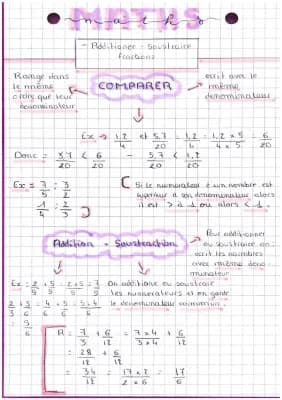 MATHS
maths
- Additionner - soustraire
fractions
Range dans
le même
ordre que leur
dénominateur
COMPARER
ecrit avec le
même
denominateur
Ex → 1,2/4 et 5,7/20 = 1,2/4 = 1,2 × 5/4 × 5 = 6/20
Donc = 5,7/20 < 6/20 - 5,7/20 < 1,2/20
Ex = 7/5 : 3/2
1/4 : 2/3
Si le numérateur d'un nombre est
supérieur à son dénominateur alors
il est > à 1 ou alors < 1.
Addition - Soustraction
Pour additionner
ou soustraire on
ecrit les nombres
avec même déno
minateur
Ex : 2/9 + 5/9 = 2+5/9 = 7/9 On additionne ou soustrait
les numérateurs et on garde
le dénominateur commun.
2/3 + 5/6 = 4/6 + 5/6 = 5+4/6
= 9/6
A = 7/3 + 6/12 = 7×4/3×4 + 6/12
= 28/12 + 6/12
= 34/12 = 17×2/2×6 = 17/6